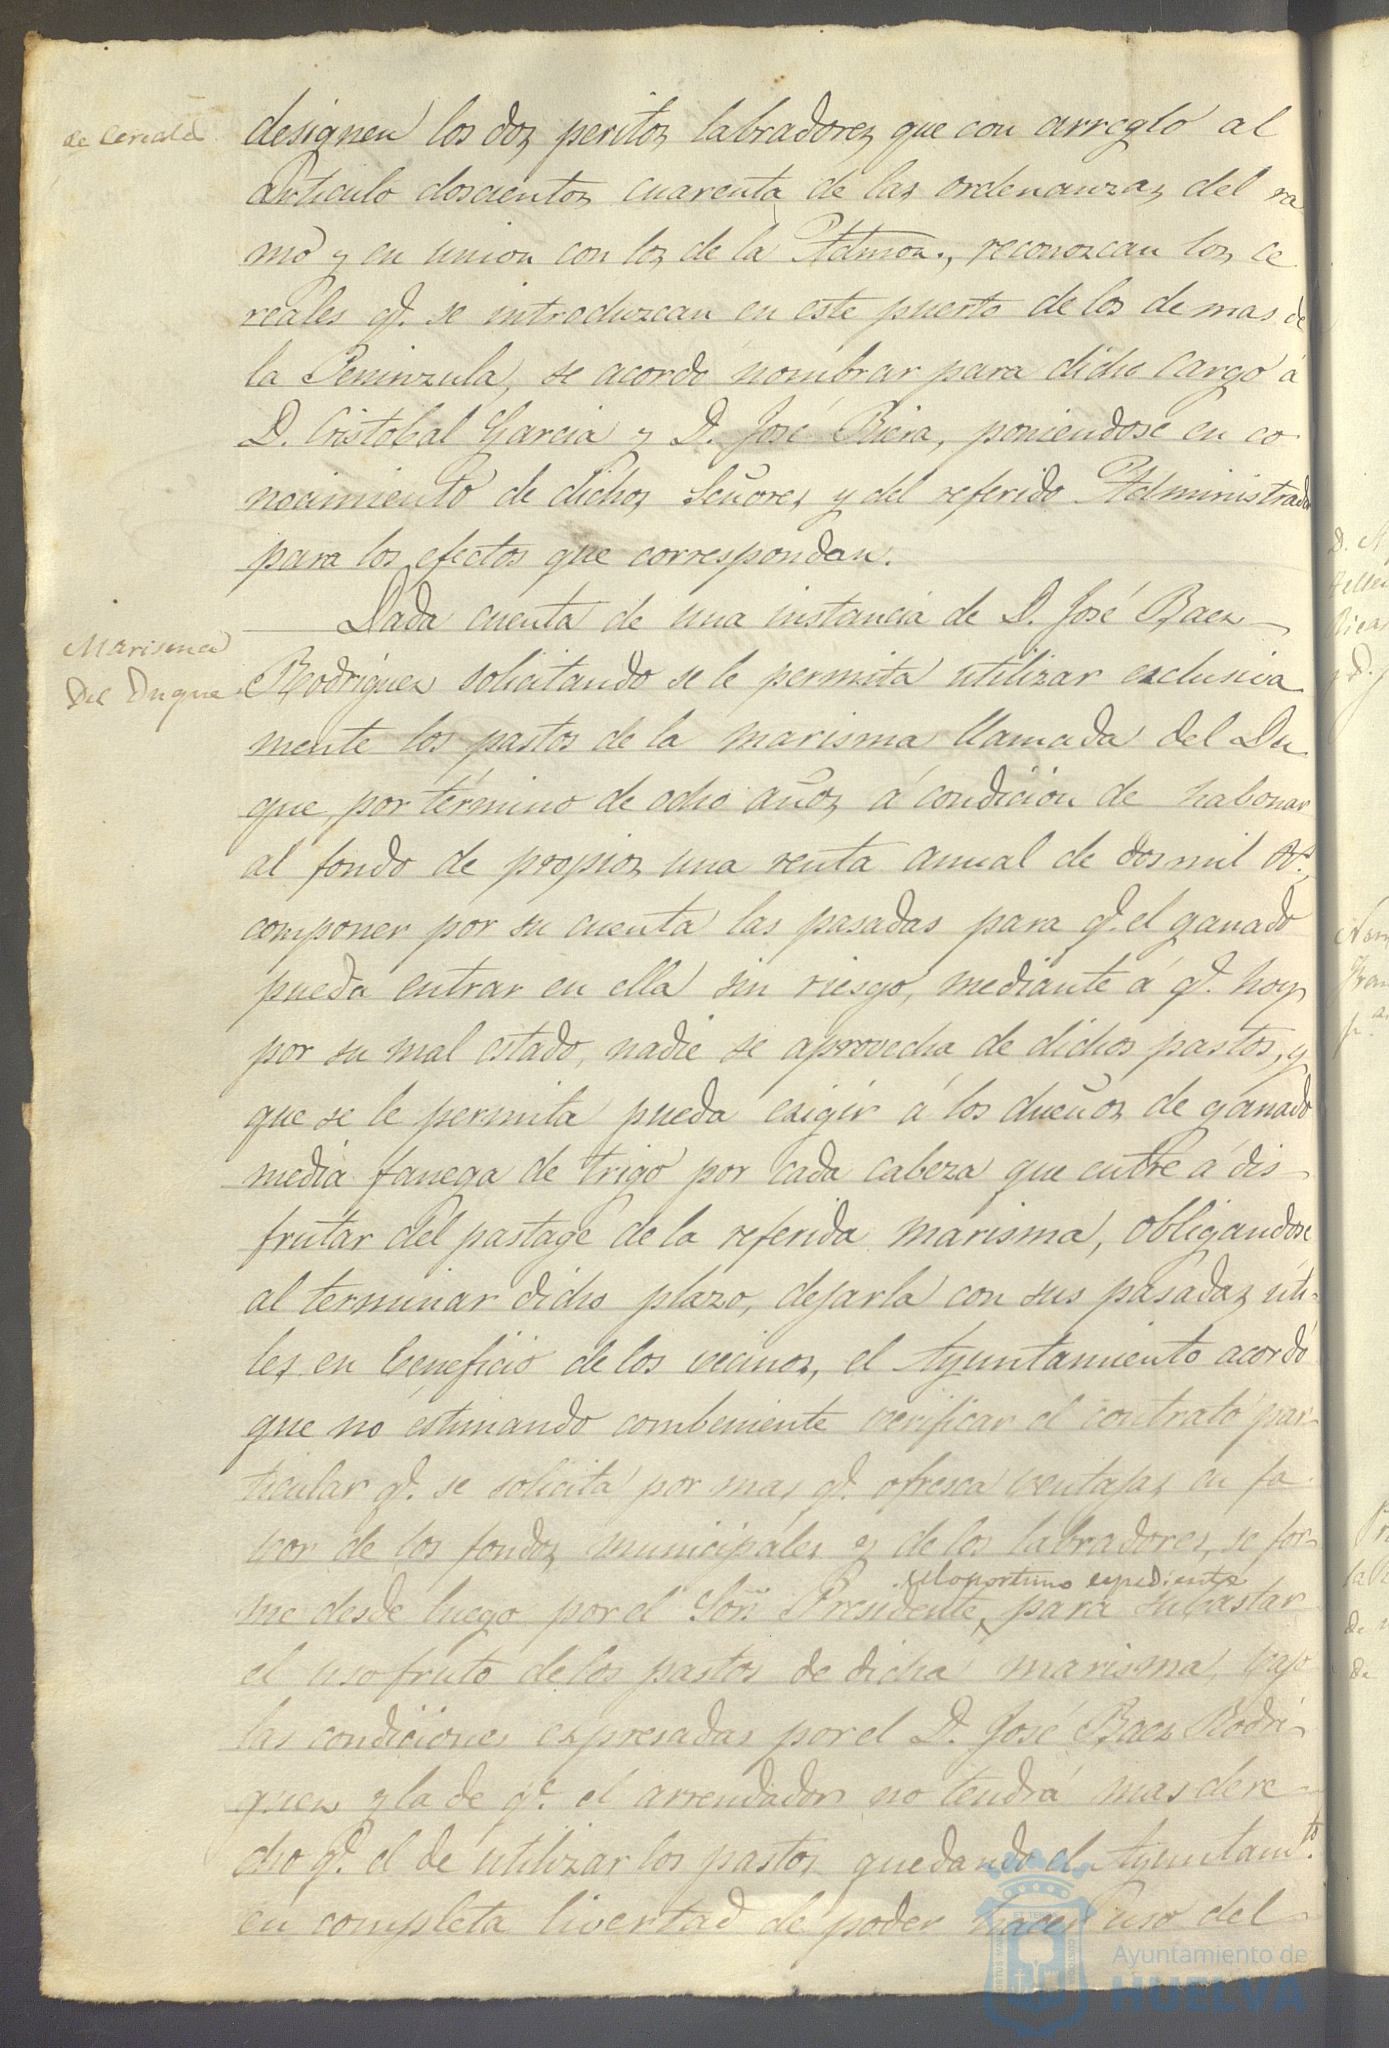 de Cereales
designen los dos peritos labradores que con arreglo al
Articulo doscientos cuarenta de las ordenanzas del ra
mo y en union con los de la Admon., reconozcan los ce
reales q.e se introduzcan en este puerto de los de mas de
la Peninzula, se acordó nombrar para dicho cargo á
D. Cristobal Garcia y D. José Riera, poniendose en co
nocimiento de dichos Señores y del referido Administrador
para los efectos que correspondan.
Marisma
del Duque
Dada cuenta de una instancia de D. José Baez
Rodriguez solicitando se le permita utilizar exclusiva
mente los pastos de la marisma llamada del Du
que, por término de ocho años á condicion de habonar
al fondo de propios una renta anual de dos mil r.s,
componer por su cuenta las pasadas para q.e el ganado
pueda entrar en ella sin riesgo, mediante á q.e hoy
por su mal estado, nadie se aprovecha de dichos pastos, y
que se le permita pueda exigir á los dueños de ganado
media fanega de trigo por cada cabeza que entre á dis
frutar del pastage de la referida marisma, obligandose
al terminar dicho plazo, dejarla con sus pasadas uti-
les en beneficio de los vecinos, el Ayuntamiento acordó
que no estimando combeniente verificar el contrato par
ticular q.e se solicita por mas q.e ofresca ventajas en fa
vor de los fondos municipales y de los labradores, se for-
el oportuno expediente
me desde luego por el Señ Presidente, para subastar
el usofruto de los pastos de dicha marisma, bajo
las condiciones expresadas por el D. José Baez Rodri
guez y la de q.e el arrendador no tendrá mas dere
cho q.e el de utilizar los pastos quedando el Ayuntam.to
en completa livertad de poder hacer uso del
Ayuntamiento de
HUELVA